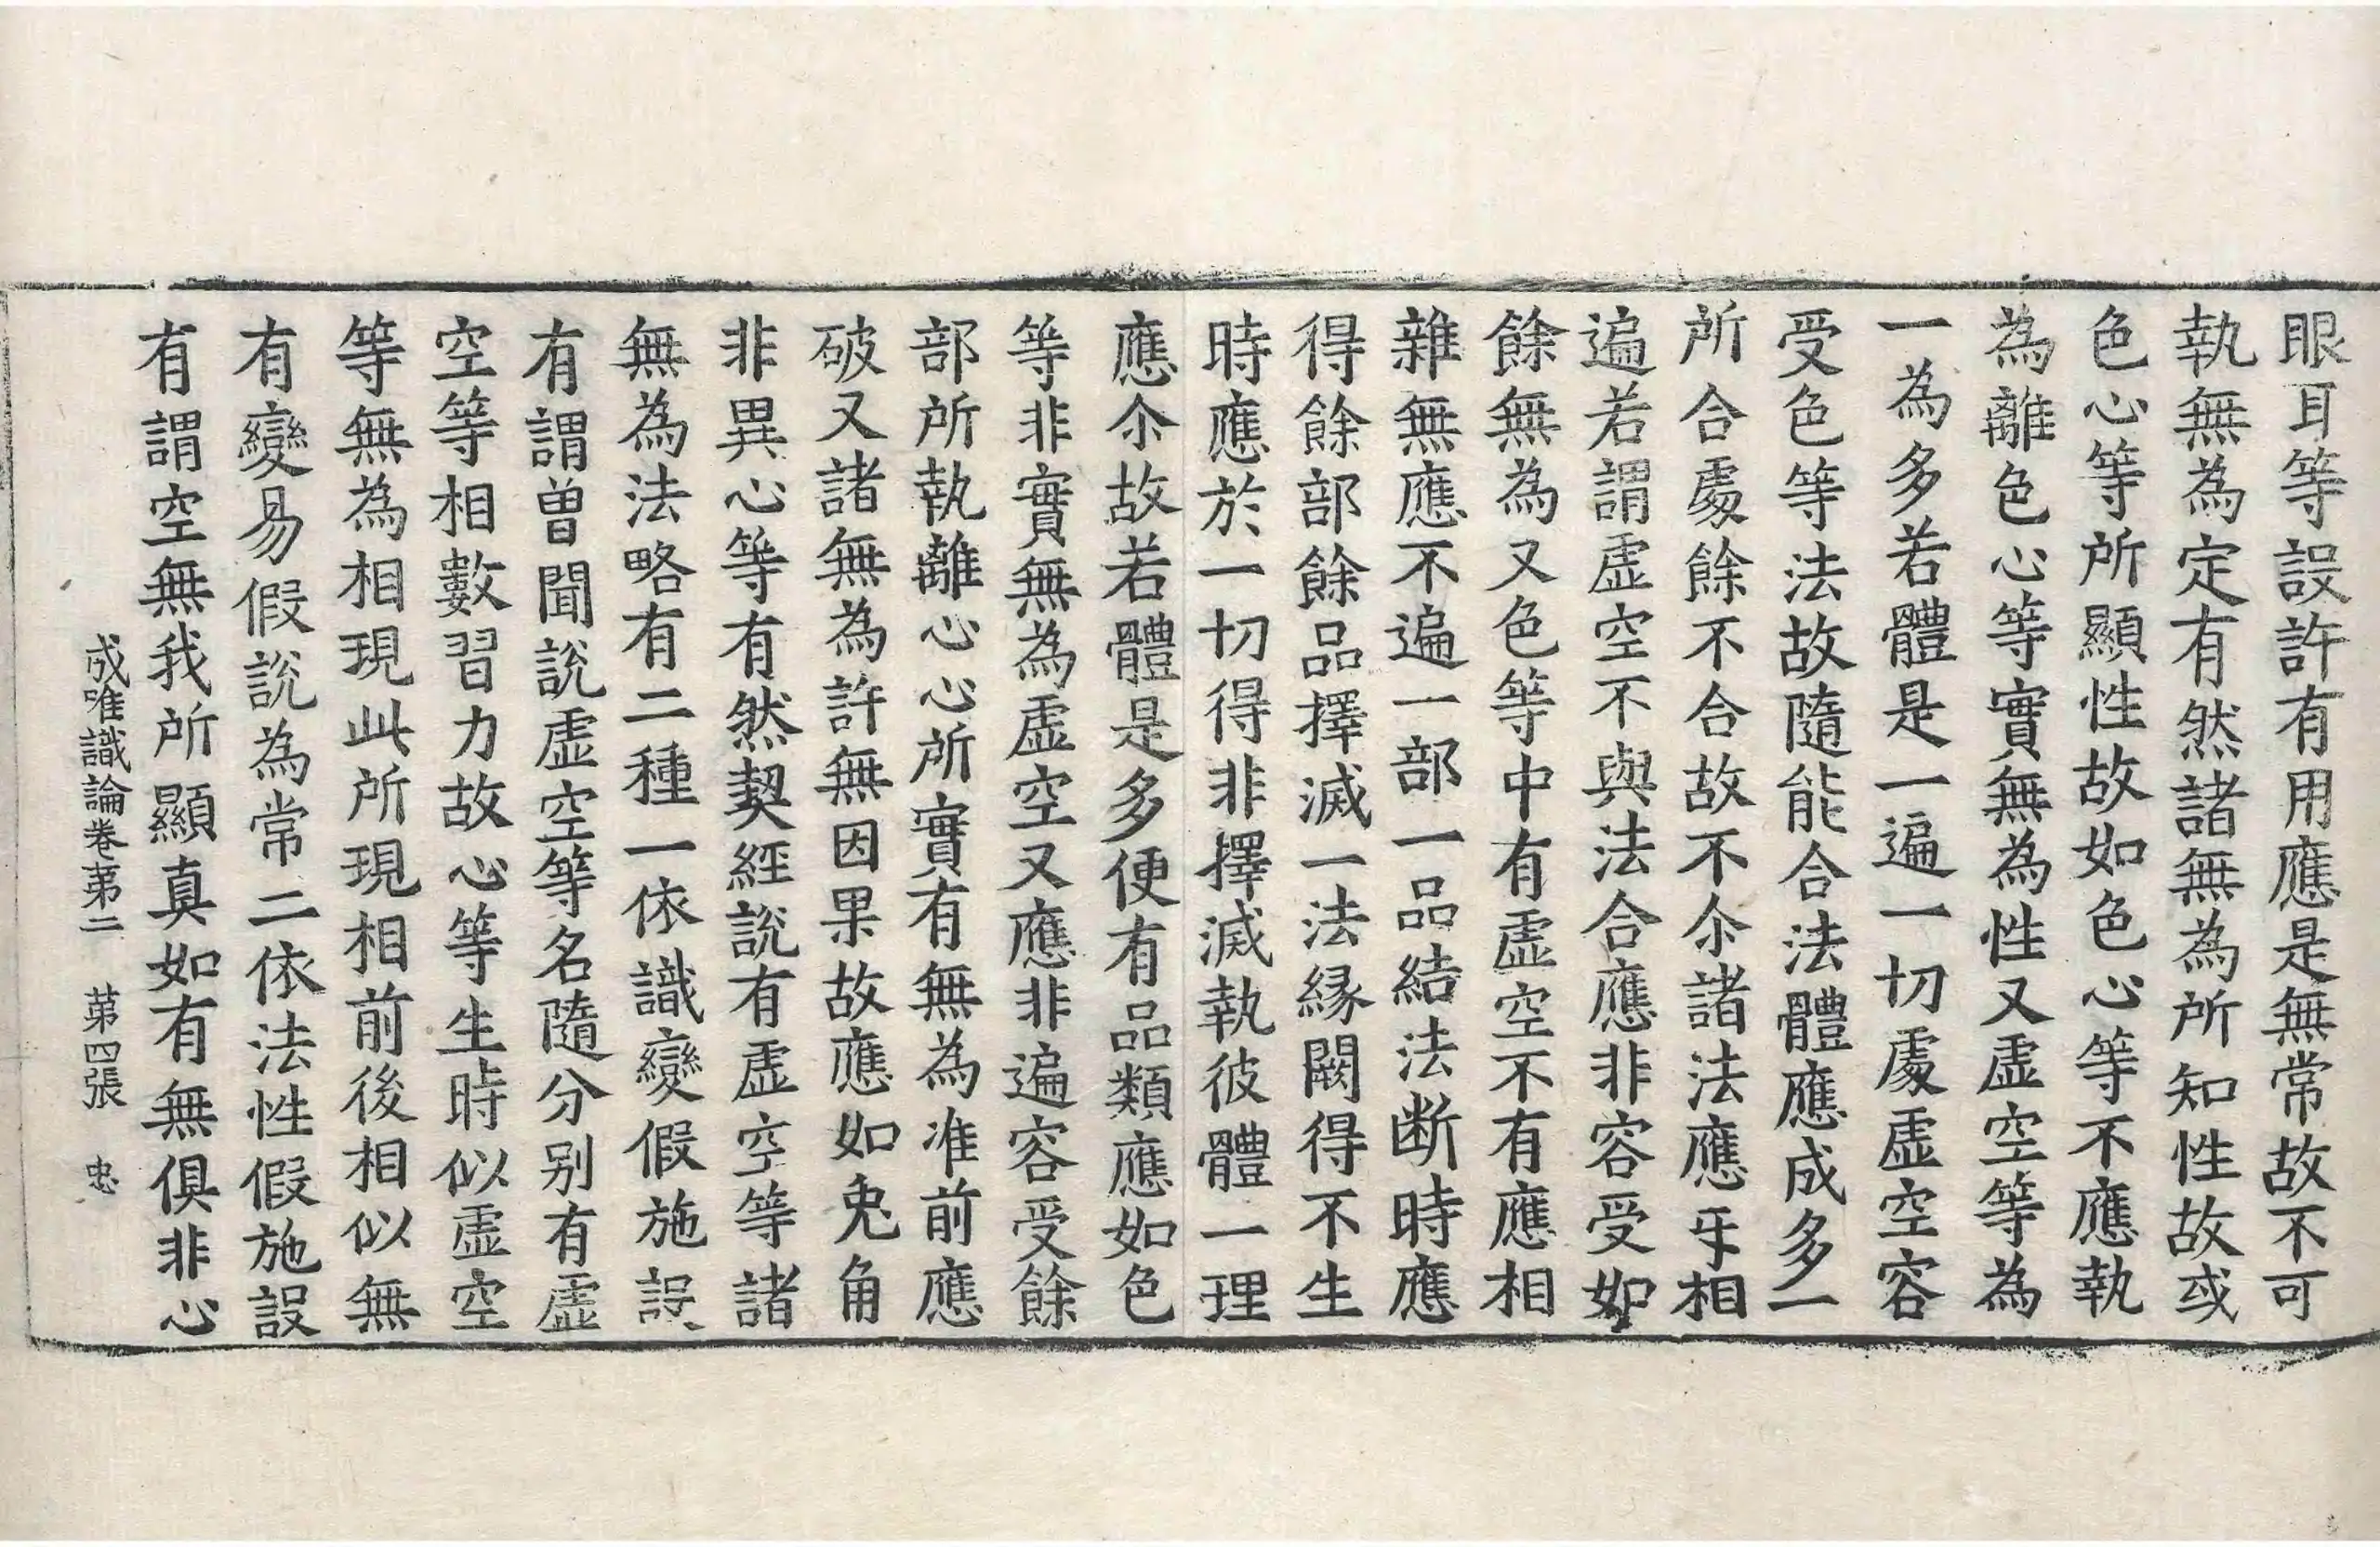 眼耳等設許有用應是無常故不可
執無為定有然諸無為所知性故或
色心等所顯性故如色心等不應執
為離色心等實無為性又虛空等為
一為多若體是一遍一切處虛空容
受色等法故隨能合法體應成多一
所合處餘不合故不尒諸法應㸦相
遍若謂虛空不與法合應非容受如
餘無為又色等中有虛空不有應相
雜無應不遍一部一品結法断時應
得餘部餘品擇滅一法緣闕得不生
時應於一切得非擇滅執彼體一理
應尒故若體是多便有品類應如色
等非實無為虛空又應非遍容受餘
部所執離心心所實有無為准前應
破又諸無為許無因果故應如兔角
非異心等有然契經說有虛空等諸
無為法略有二種一依識變假施設
有謂曾聞說虛空等名隨分別有虛
空等相數習力故心等生時似虛空
等無為相現此所現相前後相似無
有變易假說為常二依法性假施設
有謂空無我所顯真如有無俱非心
成唯識論卷第二　第四張　忠